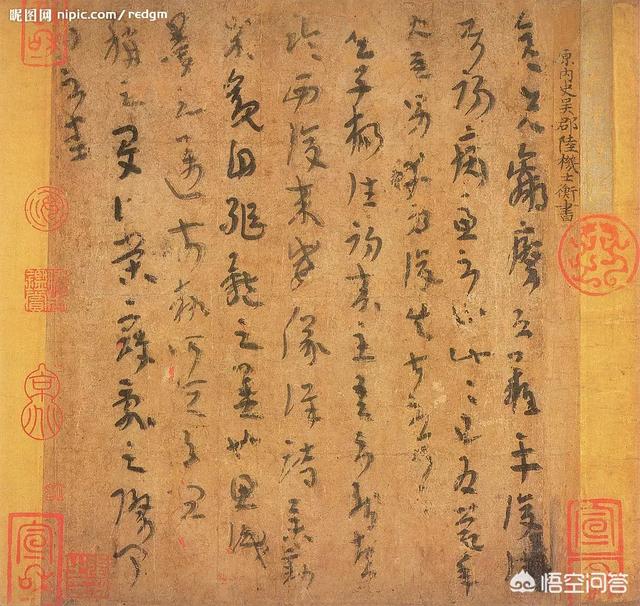 原內史吳郡陸機士衡書
彥先羸瘵恐難平復往
屬初病慮不止此此已為慶承
使唯男幸為復失前憂耳
吳子楊往初來主吾不能盡
臨西復來威儀詳跱舉動
成觀自軀體之美也思識
量之邁前執所恒有宜
稱之夏伯榮寇亂之際聞
問不悉
昵图网 nipic.com/redgm
悟空问答